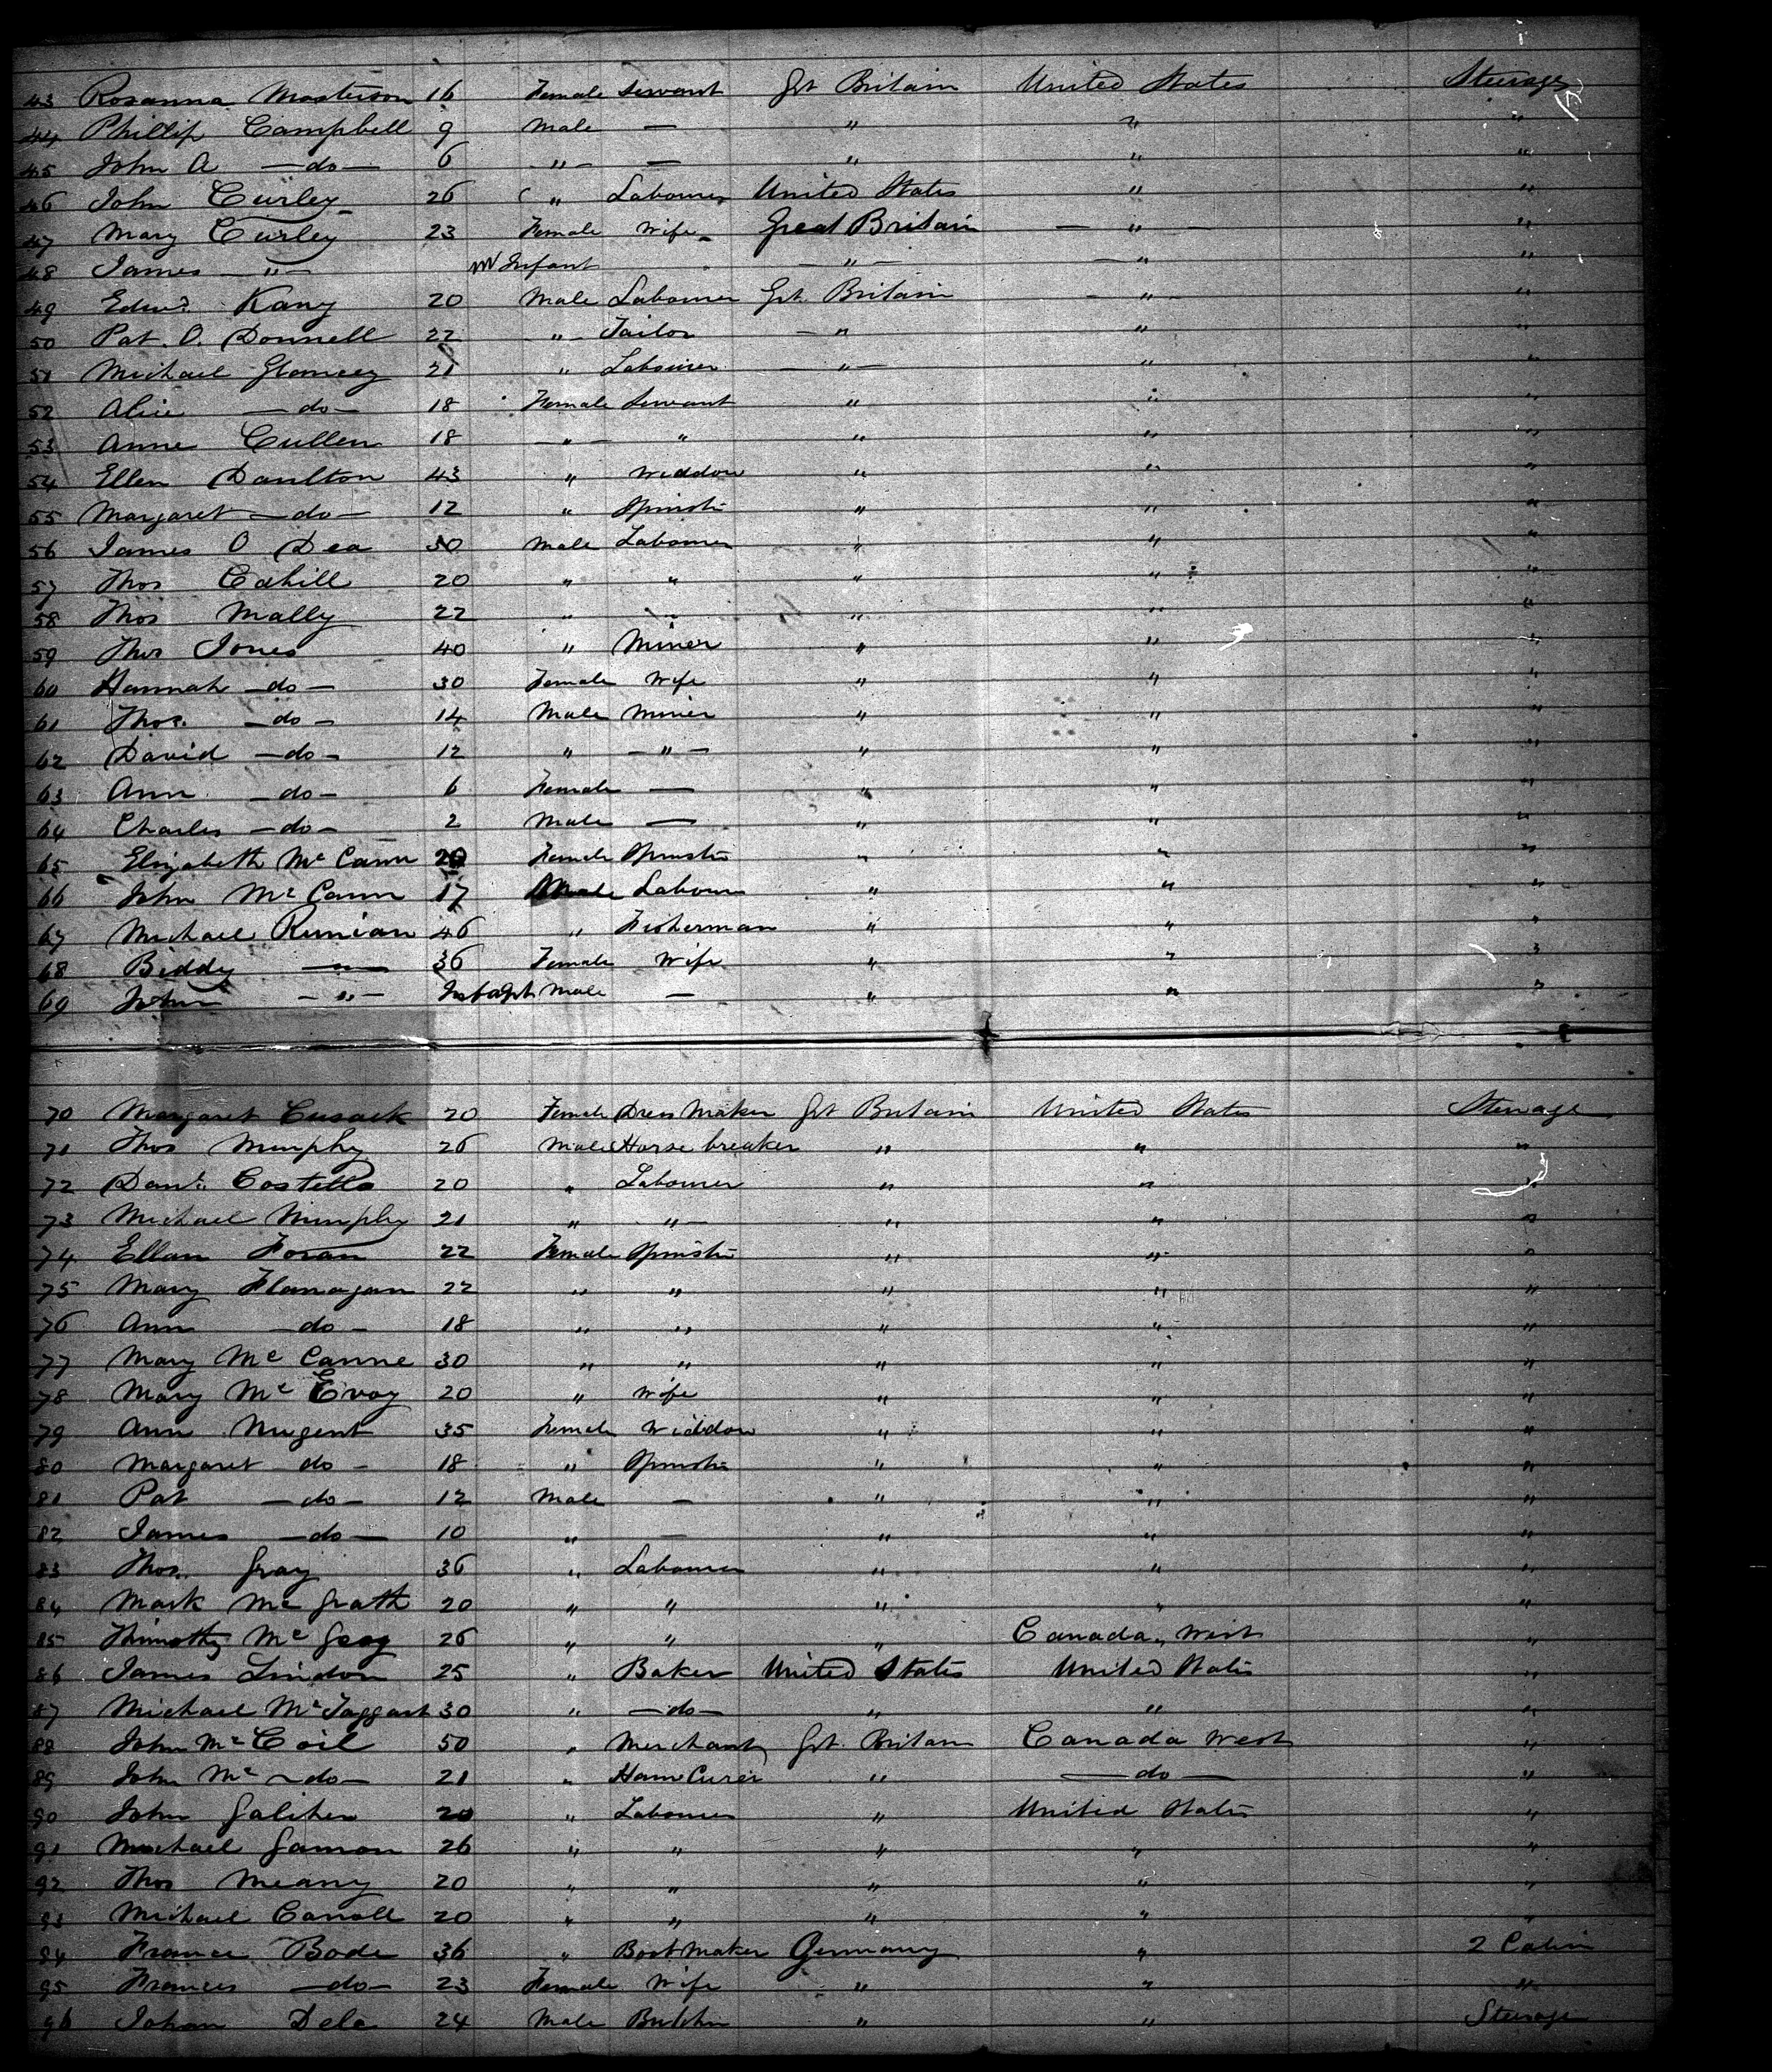 43 Rosanna Masterson 16 Female Servant Gt Britain United States Steerage
44 Phillip Campbell 9 Male — " " "
45 John A —do— 6 —"— — " " "
46 John Curley 26 " Labourer United States " "
47 Mary Curley 23 Female Wife Great Britain — " — "
48 James —"— Infant —"— —" "
49 Edwd. Kany 20 Male Labourer Gt. Britain —"— "
50 Pat. O. Donnell 22 —"— Tailor —" " "
51 Michael Glancey 21 " Labourer —"— " "
52 Alice —do— 18 Female Servant " " "
53 Anne Cullen 18 —"— " " " "
54 Ellen Daulton 43 " Widdow " " "
55 Margaret —do— 12 " Spinstr " " "
56 James O Dea 30 Male Labourer " " "
57 Thos Cahill 20 " " " " "
58 Thos Mally 22 " " " " "
59 Thos Jones 40 " Miner " " "
60 Hannah —do— 30 Female Wife " " "
61 Thos. —do— 14 Male Miner " " "
62 David —do— 12 " —"— " " "
63 Ann —do— 6 Female — " " "
64 Charles —do— 2 Male — " " "
65 Elizabeth Mc Cann 20 Female Spinstr " " "
66 John Mc Cann 17 Male Labourer " " "
67 Michael Runian 46 " Fisherman " " "
68 Biddy —"— 36 Female Wife " " "
69 John —"— Infant Male — " " "
70 Margaret Cusack 20 Female Dress Maker Gt Britain United States Steerage
71 Thos Murphy 26 Male Horse breaker " " "
72 Danl. Costello 20 " Labourer " " "
73 Michael Murphy 21 " —"— " " "
74 Ellan Foran 22 Female Spinstr " " "
75 Mary Flanagan 22 " " " " "
76 Ann —do— 18 " " " " "
77 Mary Mc Canne 30 " " " " "
78 Mary Mc Evoy 20 " Wife " " "
79 Ann Nugent 35 Female Widdow " " "
80 Margaret do — 18 " Spinstr " " "
81 Pat —do— 12 Male — " " "
82 James —do— 10 " — " " "
83 Thos. Gray 36 " Labourer " " "
84 Mark Mc Grath 20 " " " " "
85 Thimothy Mc 26 " " " Canada West "
86 James Lindon 25 " Baker United States United States "
87 Michael Mc Taggart 30 " —do— " " "
88 John Mc Coil 50 " Merchant Gt. Britain Canada West "
89 John Mc —do— 21 " Ham Curer " —do— "
90 John Galiher 20 " Labourer " United States "
91 Michael Gamon 26 " " " " "
92 Thos Meany 20 " " " " "
93 Michael Carroll 20 " " " " "
94 France Bode 36 " Boot Maker Germany " 2 Cabin
95 Frances —do— 23 Female Wife " " "
96 Johan Dele 24 Male Butcher " " Steerage